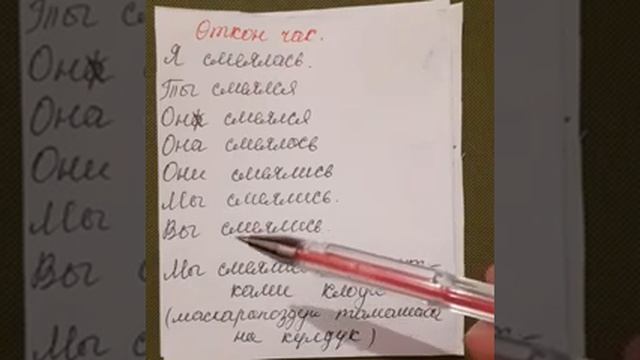 Откон час.
Я смеялась.
Ты смеялся
Он смеялся
Она смеялось
Они смеялись
Мы смеялись.
Вы смеялись.
Мы
ками
(маскарапоздун тамашасы
на кулдук)